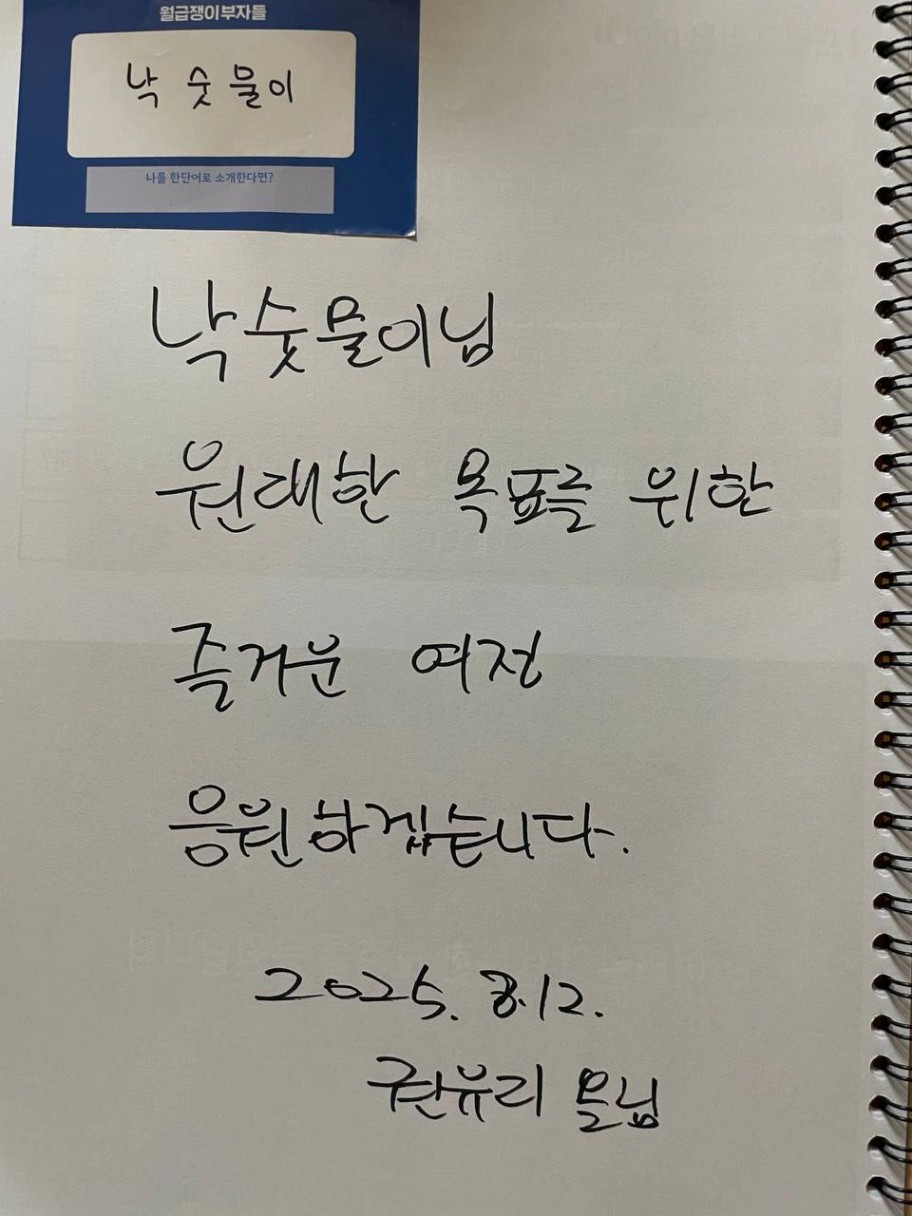 월급쟁이부자들
낙숫물이
나를 한단어로 소개한다면?
낙숫물이님
원대한 목표를 위한
즐거운 여정
응원하겠습니다.
2025. 8.12.
권유리